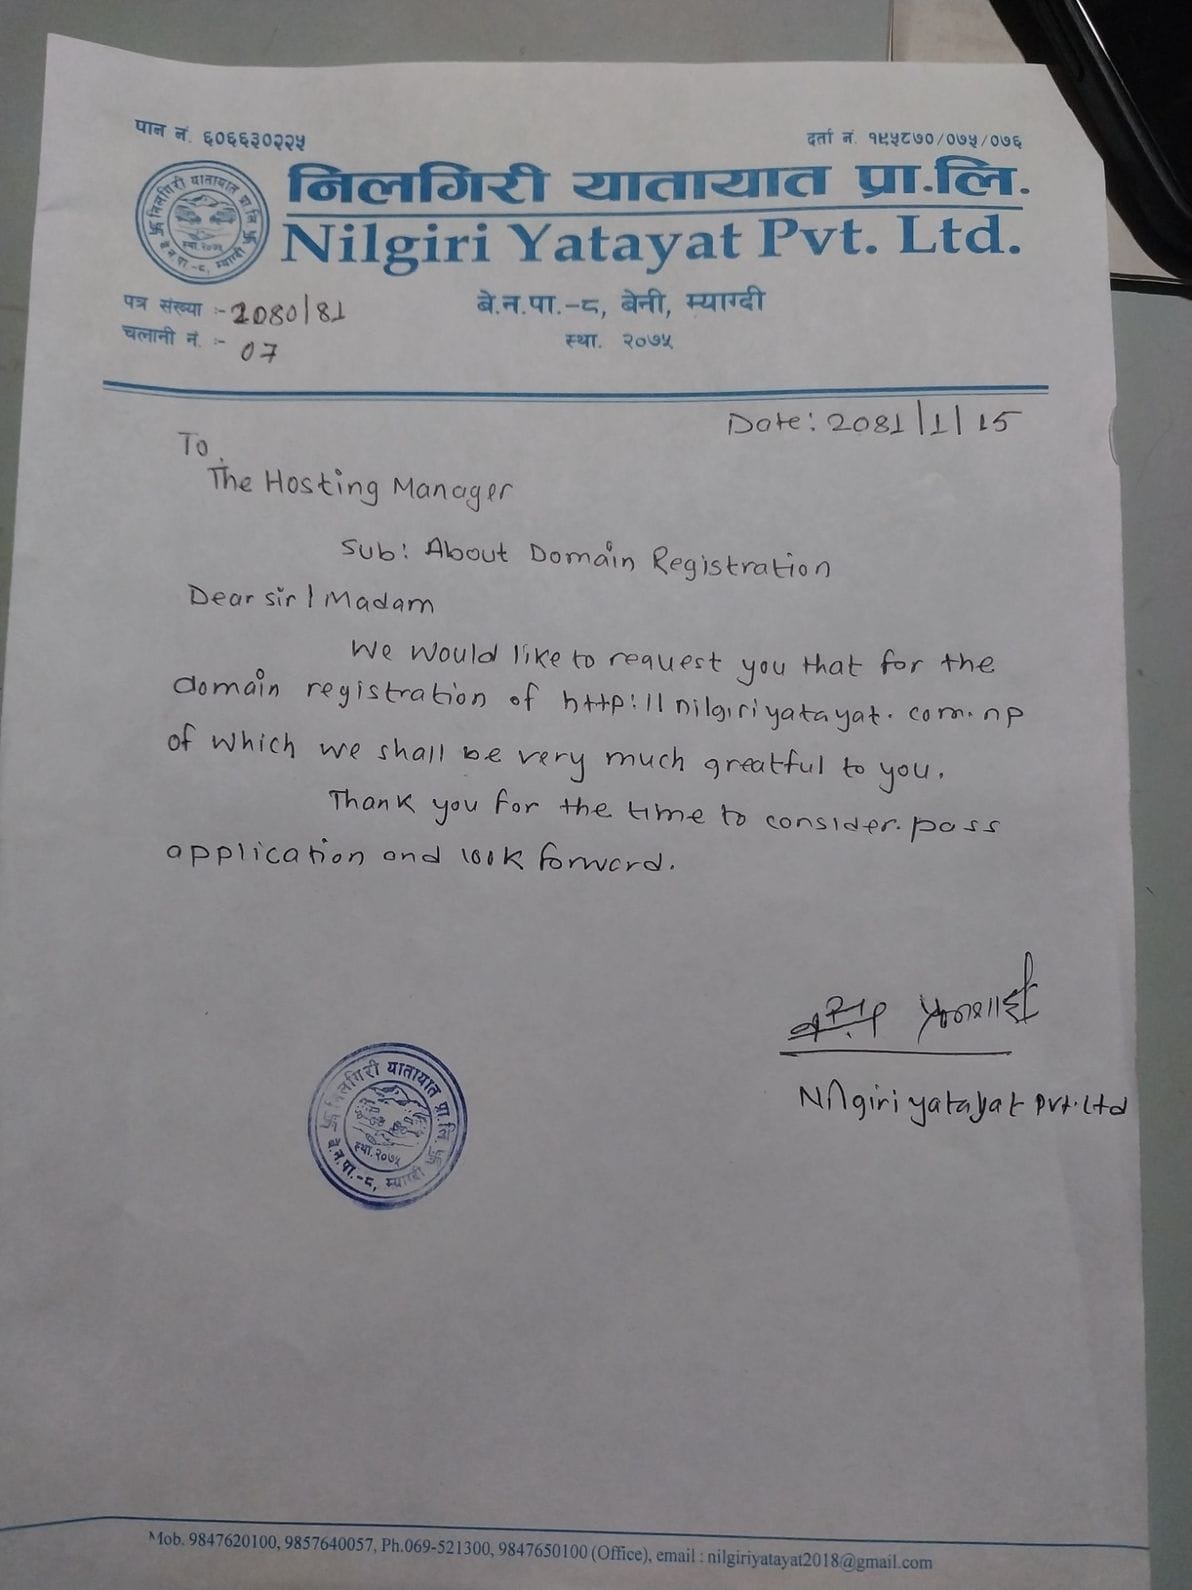 पान नं. ६०६६३०२२५
दर्ता नं. १९५८७०/०७५/०७६
निलगिरी यातायात प्रा.लि.
Nilgiri Yatayat Pvt. Ltd.
निलगिरी यातायात प्रा.लि.
स्था. २०७५
बे.न.पा.-८, म्याग्दी
पत्र संख्या :- 2080/81
बे.न.पा.-८, बेनी, म्याग्दी
चलानी नं. :- 07
स्था. २०७५
Date: 2081/1/15
To,
The Hosting Manager
Sub: About Domain Registration
Dear sir/Madam
We would like to request you that for the
domain registration of http://nilgiriyatayat.com.np
of which we shall be very much greatful to you.
Thank you for the time to consider. pass
application and look forward.
Nilgiri yatayat pvt.ltd
निलगिरी यातायात प्रा.लि.
स्था. २०७५
बे.न.पा.-८, म्याग्दी
Mob. 9847620100, 9857640057, Ph.069-521300, 9847650100 (Office), email : nilgiriyatayat2018@gmail.com